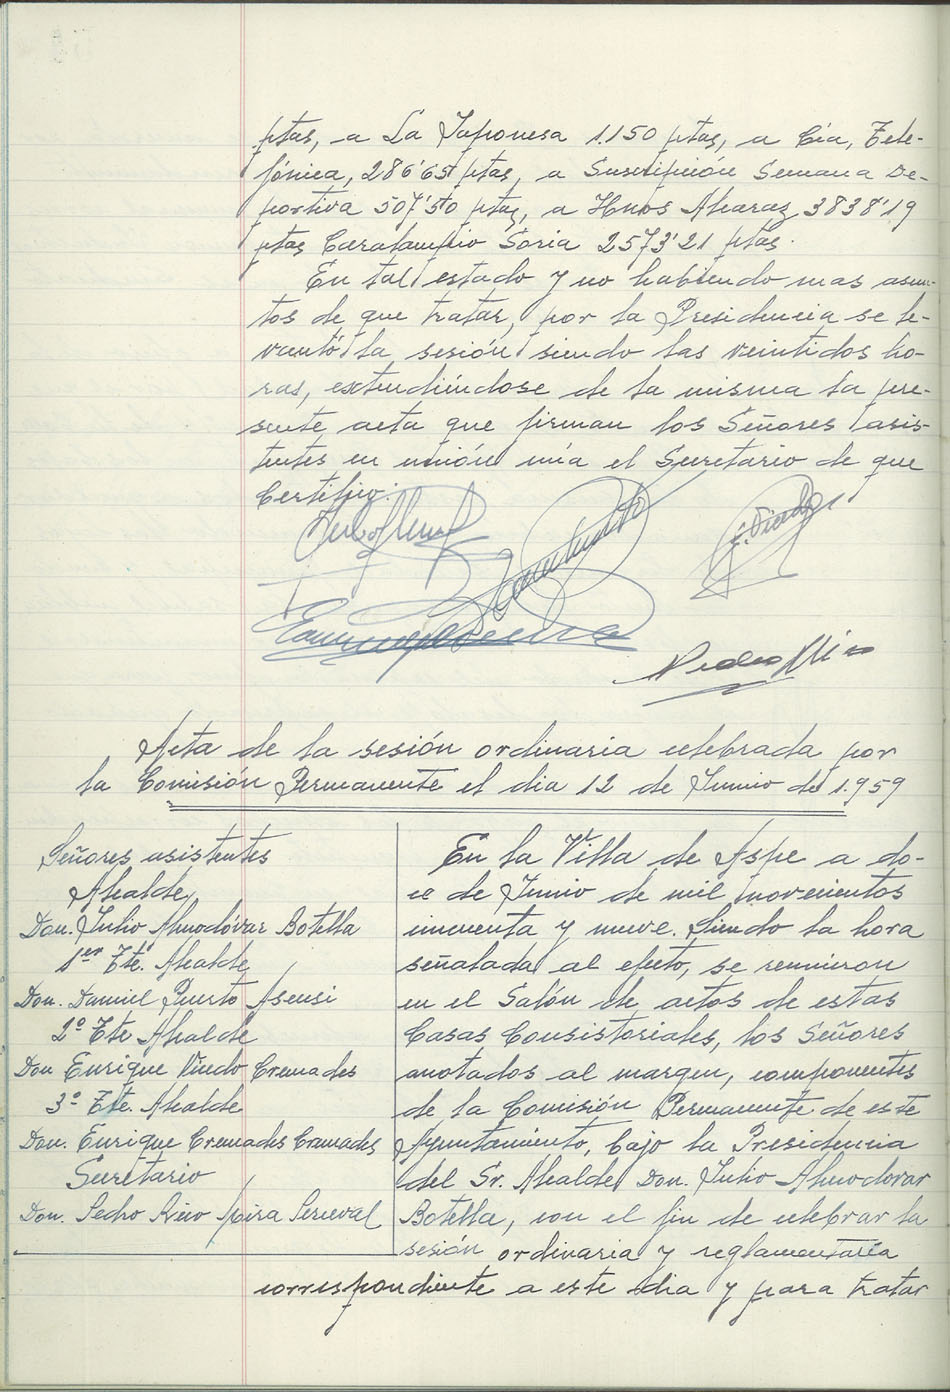 ptas, a La Japonesa 1.150 ptas, a Cía, Tele-
fónica, 286'65 ptas, a Suscripción Semana De-
portiva 507'50 ptas, a Hnos Alcaraz 3838'19
ptas Caralampio Soria 2573'21 ptas.
En tal estado y no habiendo mas asun-
tos de que tratar, por la Presidencia se le-
vantó la sesión siendo las veintidos ho-
ras, extendiéndose de la misma la pre-
sente acta que firman los Señores asis-
tentes en unión mía el Secretario de que
Certifico:
Acta de la sesión ordinaria celebrada por
la Comisión Permanente el dia 12 de Junio de 1.959
Señores asistentes
Alcalde
Don. Julio Almodóvar Botella
1er Tte. Alcalde
Don. Daniel Puerto Asensi
2º Tte Alcalde
Don Enrique Vicedo Cremades
3º Tte. Alcalde
Don. Enrique Cremades Cremades
Secretario
Don. Pedro Rico
En la Villa de Aspe a do-
ce de Junio de mil novecientos
cincuenta y nueve. Siendo la hora
señalada al efecto, se reunieron
en el Salón de actos de estas
Casas Consistoriales, los Señores
anotados al margen, componentes
de la Comisión Permanente de este
Ayuntamiento, bajo la Presidencia
del Sr. Alcalde Don. Julio Almodovar
Botella, con el fin de celebrar la
sesión ordinaria y reglamentaria
correspondiente a este dia y para tratar